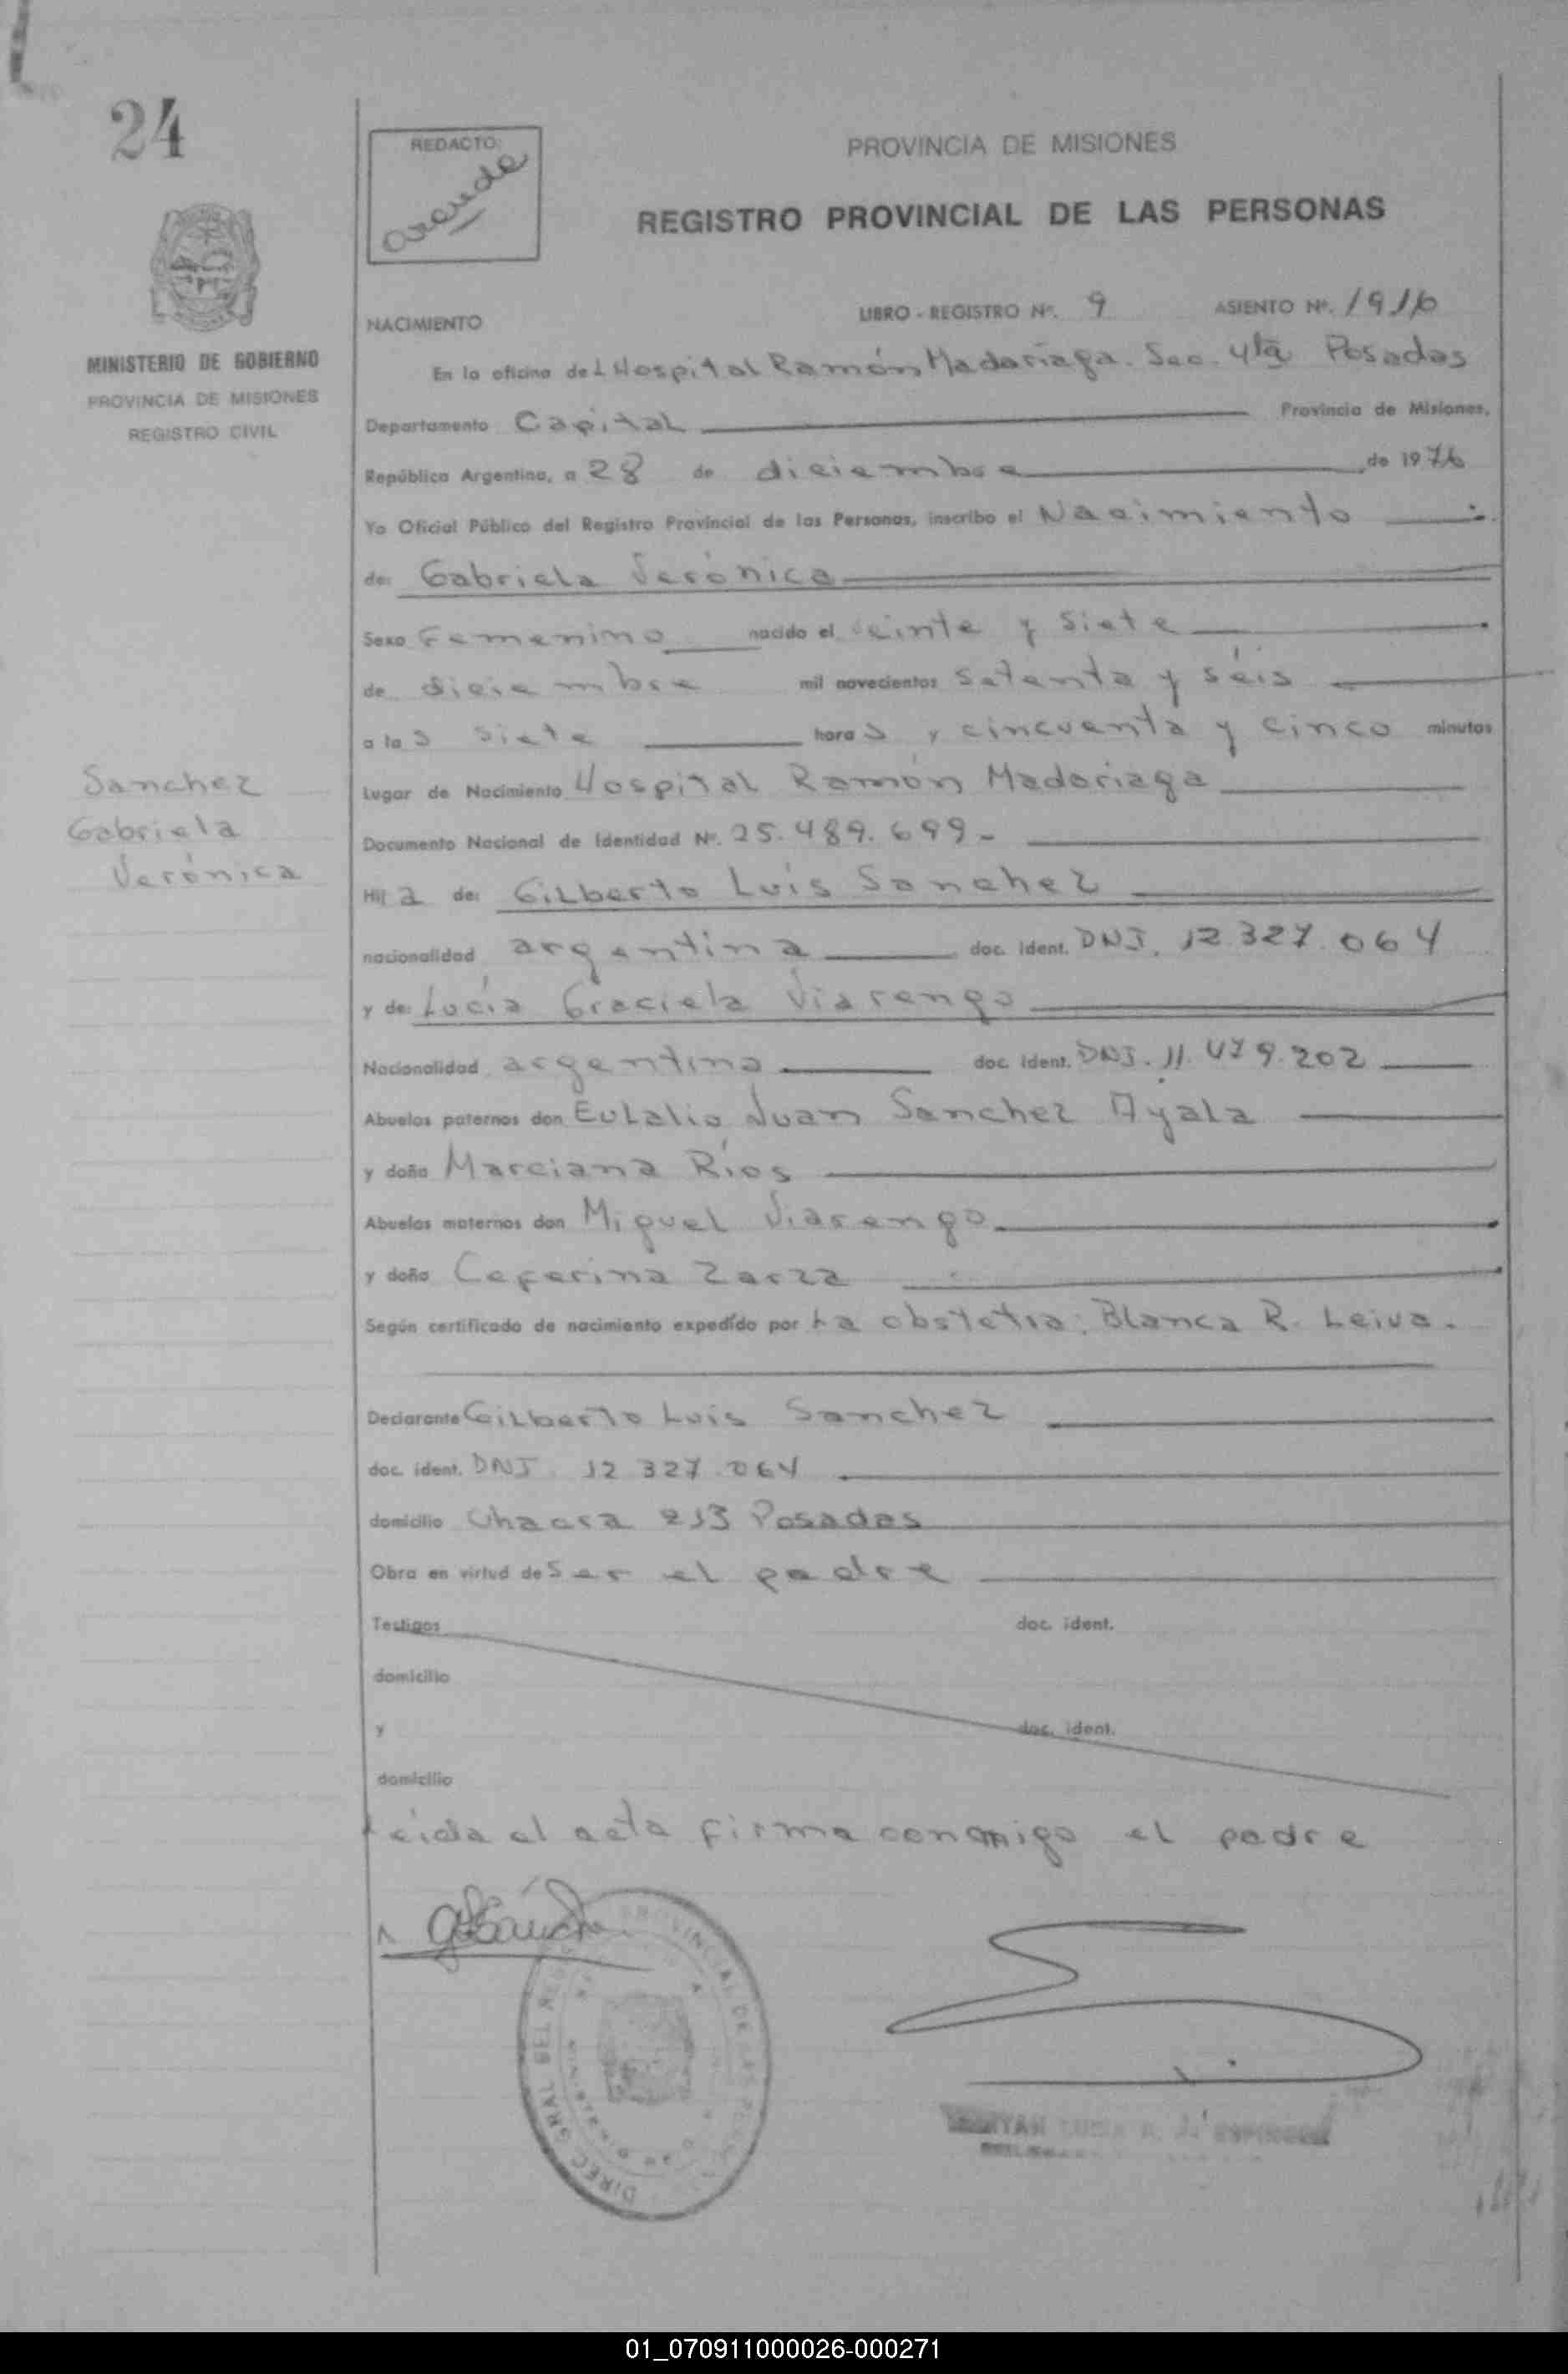 24
REDACTO:
PROVINCIA DE MISIONES
REGISTRO PROVINCIAL DE LAS PERSONAS
MINISTERIO DE GOBIERNO
PROVINCIA DE MISIONES
REGISTRO CIVIL
NACIMIENTO LIBRO - REGISTRO Nº. 9 ASIENTO Nº. 1916
En la oficina del Hospital Ramón Madariaga. Sec. 4ta Posadas
Departamento Capital Provincia de Misiones,
República Argentina, a 28 de diciembre de 1976
Yo Oficial Público del Registro Provincial de las Personas, inscribo el Nacimiento
de: Gabriela Verónica
Sexo Femenino nacido el veinte y siete
de diciembre mil novecientos setenta y séis
a las siete horas y cincuenta y cinco minutos
Sanchez
Gabriela
Verónica
Lugar de Nacimiento Hospital Ramón Madariaga
Documento Nacional de Identidad Nº. 25.489.699-
Hija de: Gilberto Luis Sanchez
nacionalidad argentina doc. ident. DNI. 12.327.064
y de: Lucía Graciela Viarengo
Nacionalidad argentina doc. ident. DNI. 11.479.202
Abuelos paternos don Eulalio Juan Sanchez Ayala
y doña Marciana Ríos
Abuelos maternos don Miguel Viarengo
y doña Ceferina Zarza
Según certificado de nacimiento expedido por La obstetra: Blanca R. Leiva.
Declarante Gilberto Luis Sanchez
doc. ident. DNI 12 327.064
domicilio Chacra 213 Posadas
Obra en virtud de ser el padre
Testigos doc. ident.
domicilio
y doc. ident.
domicilio
Leida el acta firma conmigo el padre
DIREC GRAL DEL REG PROVINCIAL DE LAS
01_070911000026-000271